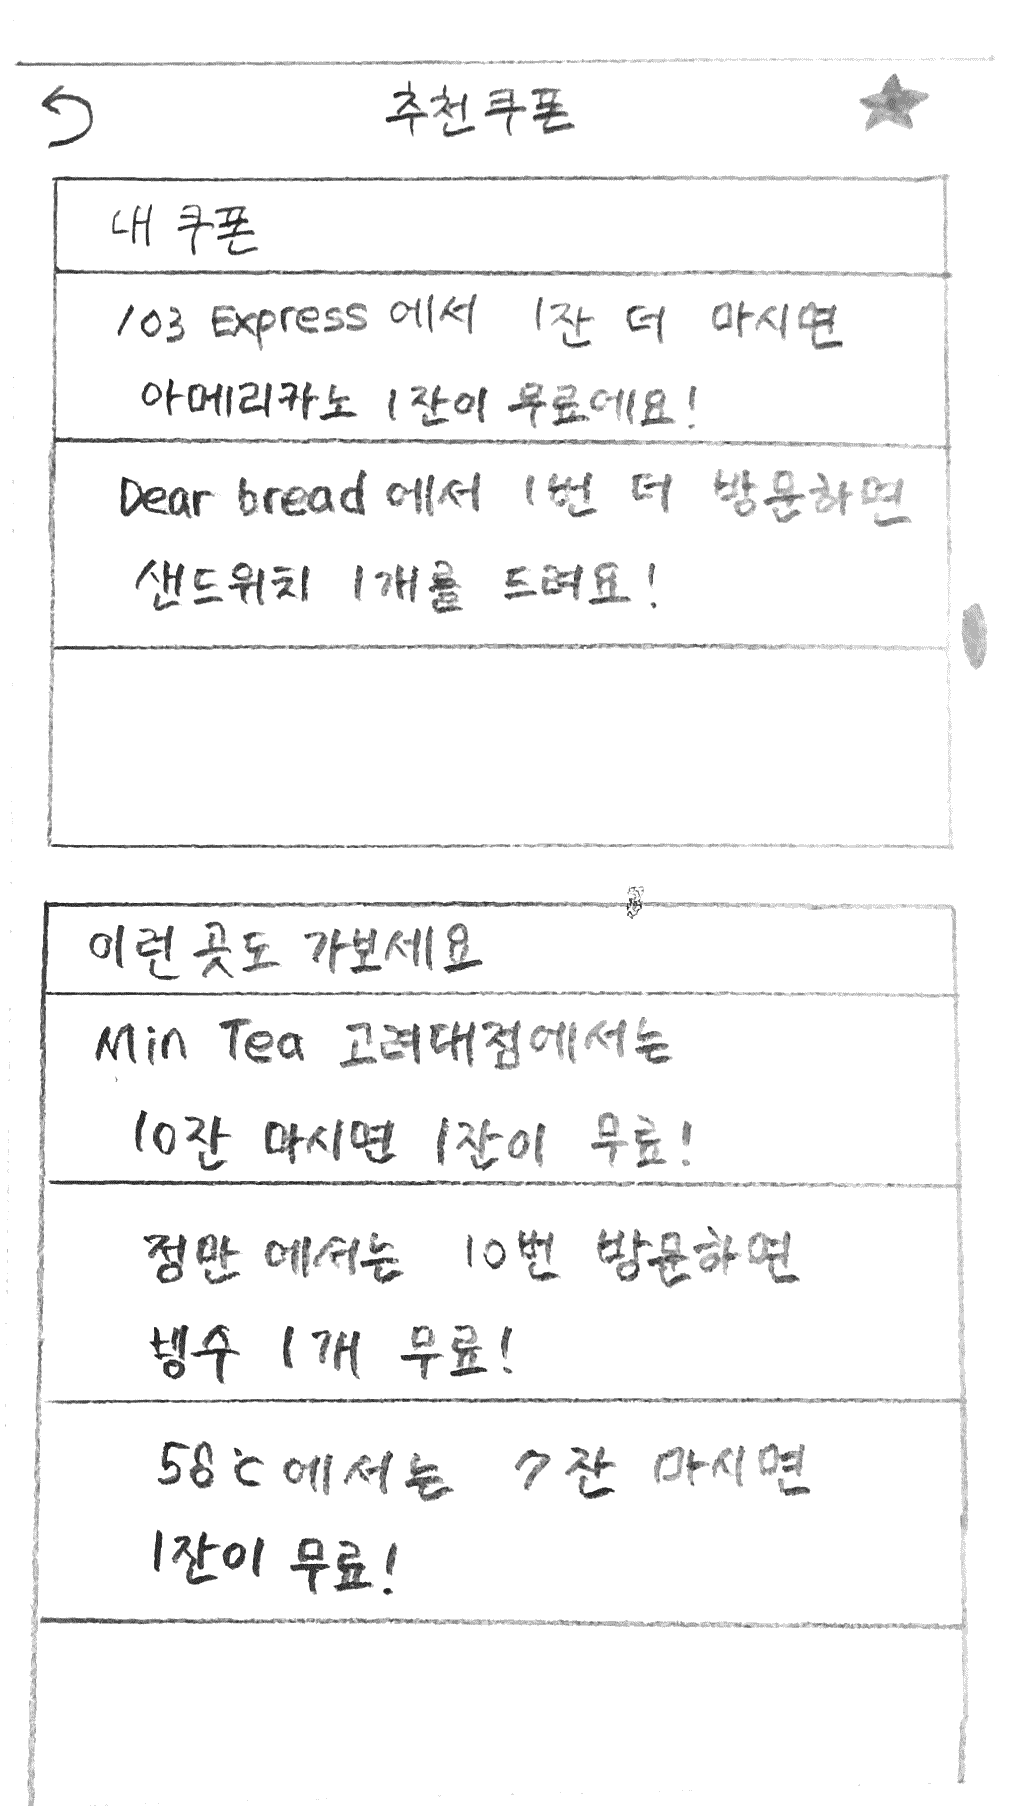 추천쿠폰
내 쿠폰
103 Express에서 1잔 더 마시면
아메리카노 1잔이 무료에요!
Dear bread에서 1번 더 방문하면
샌드위치 1개를 드려요!
이런 곳도 가보세요
Min Tea 고려대점에서는
10잔 마시면 1잔이 무료!
정만 에서는 10번 방문하면
벵수 1개 무료!
58℃에서는 7잔 마시면
1잔이 무료!